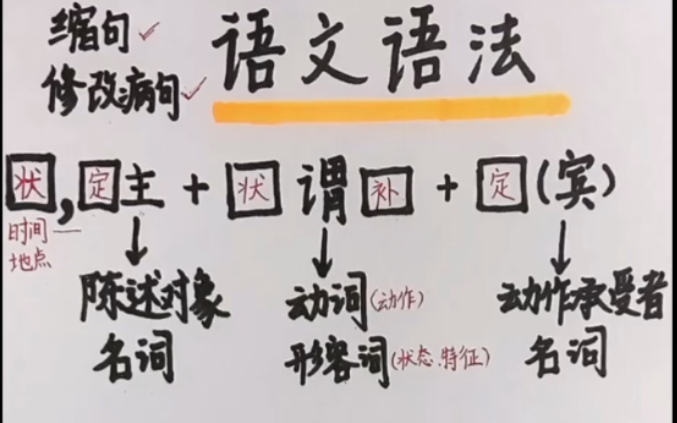 缩句✓
修改病句✓
语文语法
状,定主+状谓补+定(宾)
时间
地点
陈述对象
名词
动词(动作)
形容词(状态、特征)
动作承受者
名词